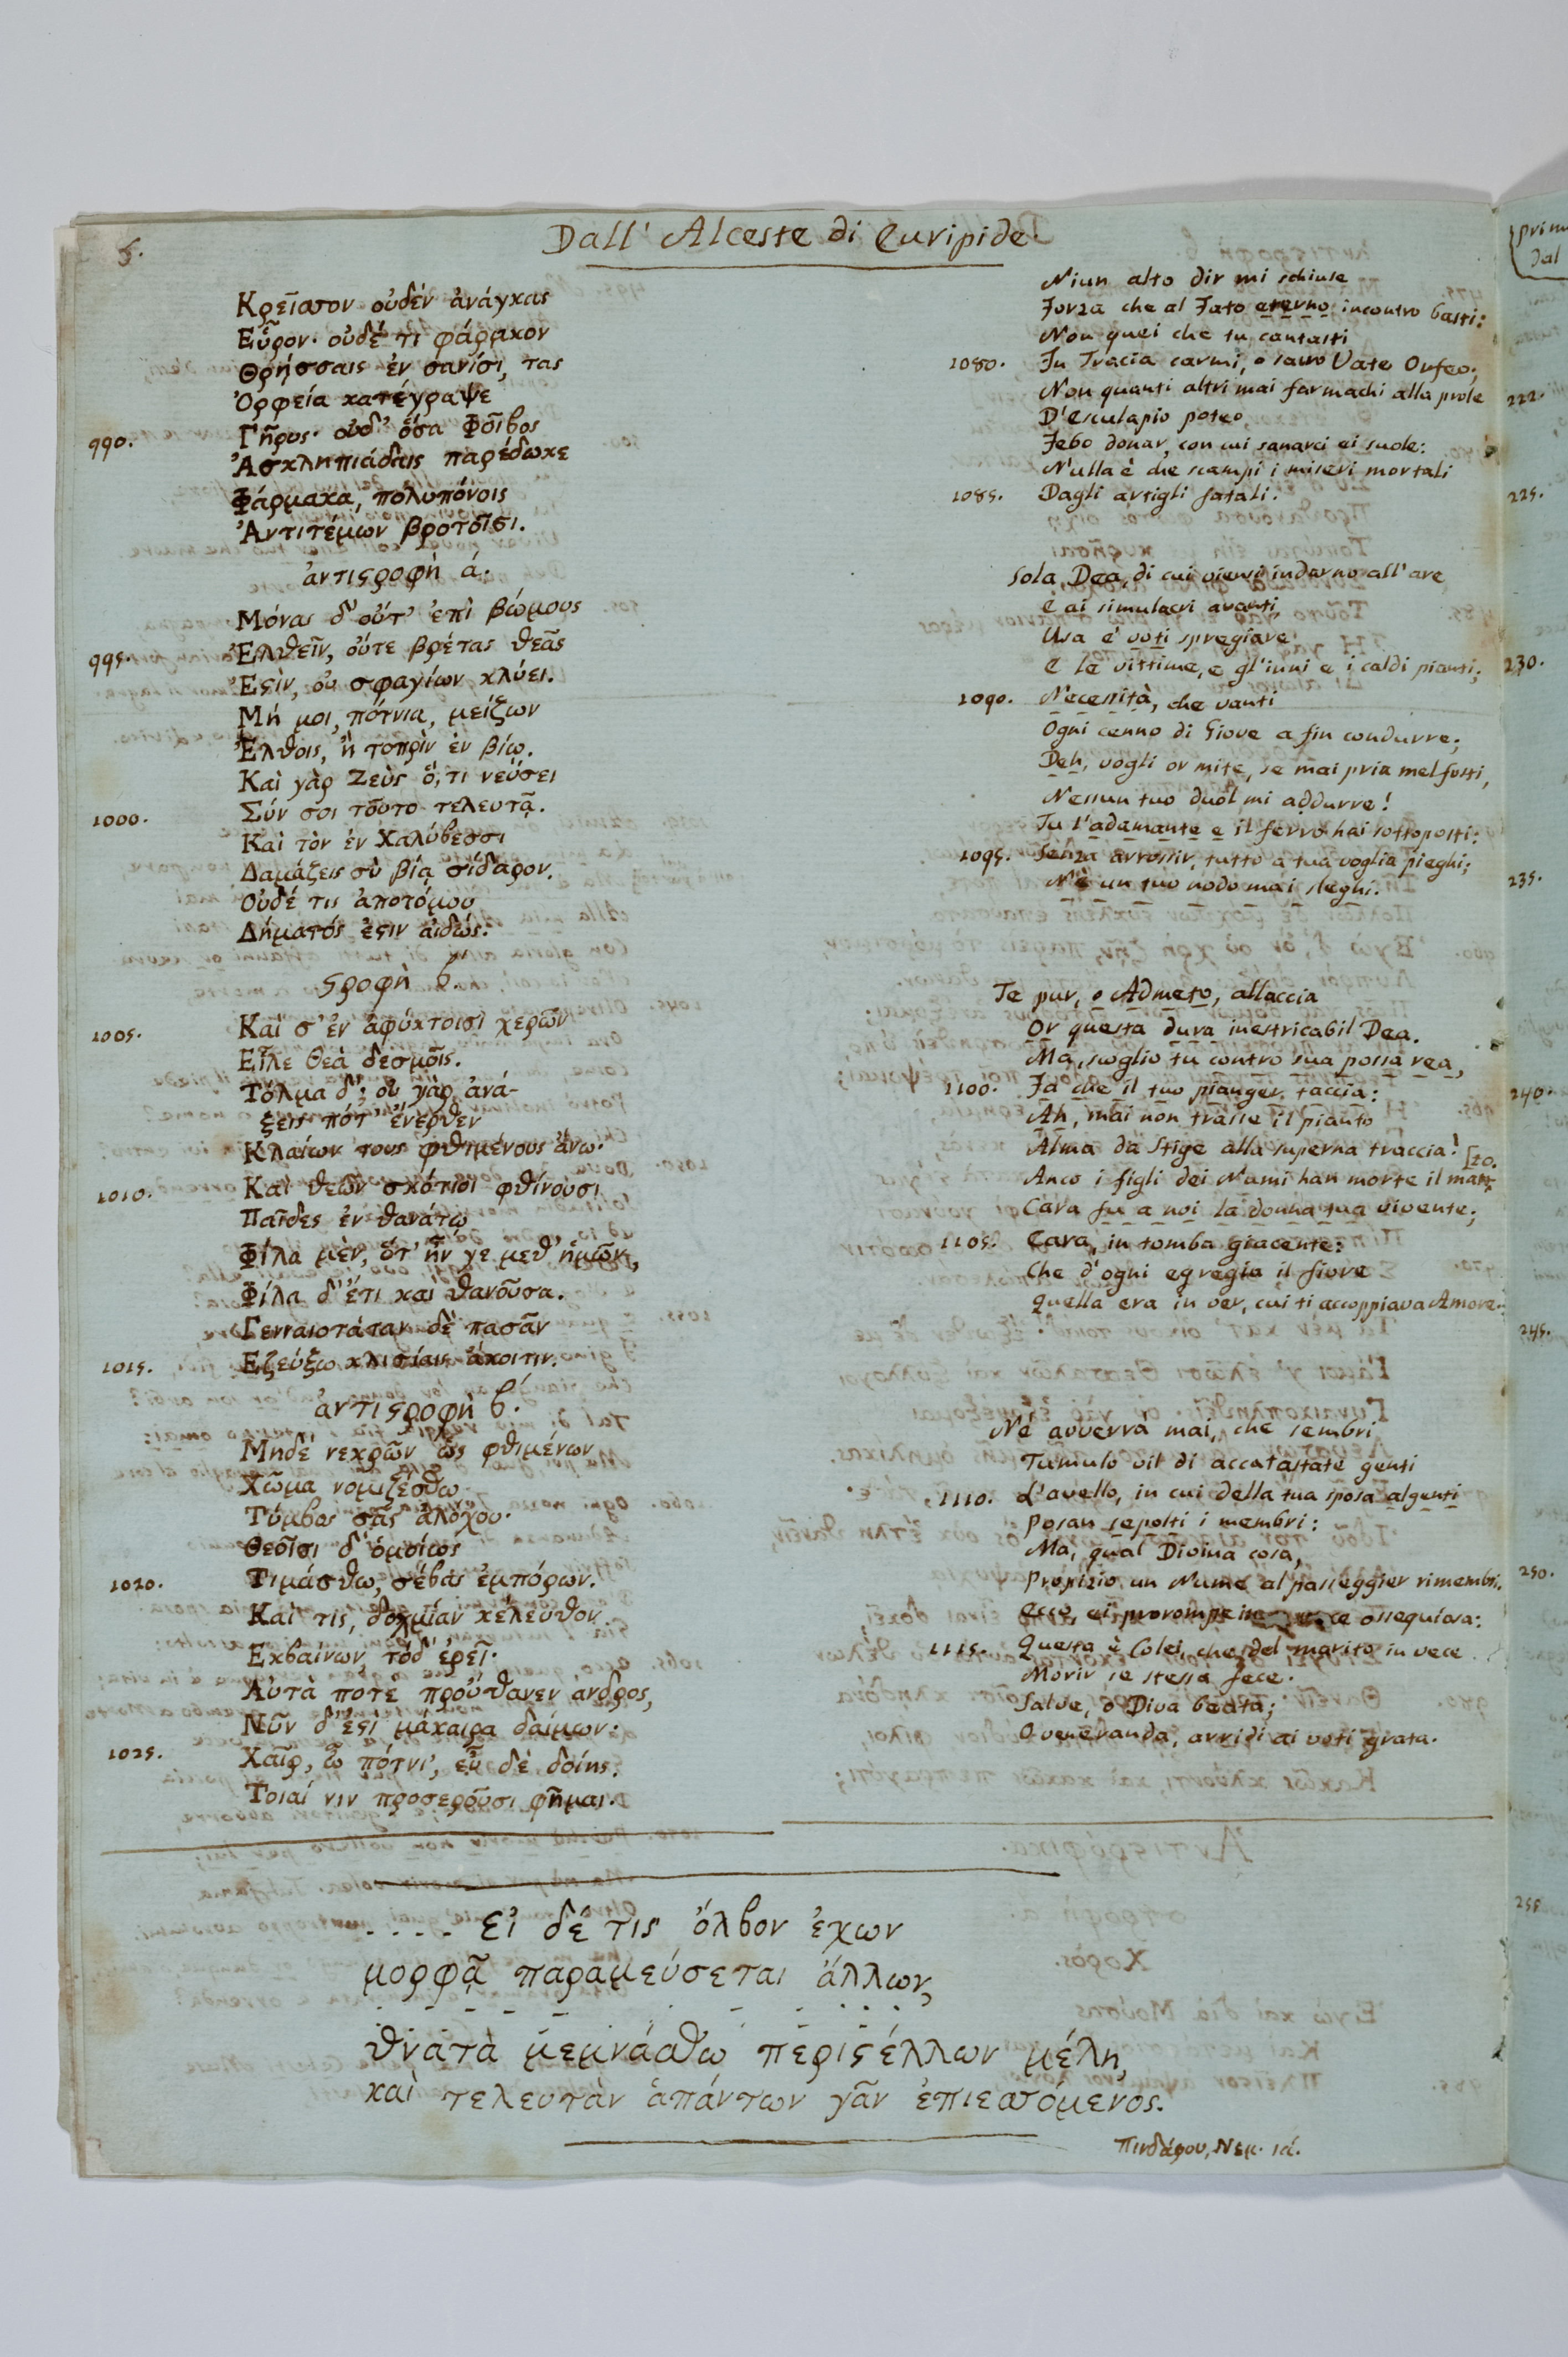 5.
Dall' Alceste di Euripide
Κρεῖσσον οὐδέν ἀνάγκας
Εὗρον· οὐδέ τι φάρμακον
Θρήσσαις ἐν σανίσι, τας
Ὀρφεία κατέγραψε
990.
Γῆρυς· οὐδ' ὅσα Φοῖβος
Ἀσκληπιάδαις παρέδωκε
Φάρμακα, πολυπόνοις
Ἀντιτέμων βροτοῖσι.
ἀντιςροφὴ ά.
Μόνας δ' οὔτ' ἐπὶ βώμους
995.
Ἐλθεῖν, οὔτε βρέτας θεᾶς
Ἔςιν, οὐ σφαγίων κλύει.
Μή μοι, πότνια, μείζων
Ἔλθοις, ἢ τοπρὶν ἐν βίῳ.
Καὶ γὰρ Ζεὺς ὅ, τι νεύσει
1000.
Σύν σοι τοῦτο τελευτᾷ.
Καὶ τὸν ἐν Χαλύβεσσι
Δαμάζεις σὺ βίᾳ σίδαρον.
Οὐδέ τις ἀποτόμου
Λήματός ἐςιν αἰδώς.
ςροφὴ β́.
1005.
Καί σ' ἐν ἀφύκτοισι χερῶν
Εἷλε θεὰ δεσμοῖς.
Τόλμα δ'; οὐ γὰρ ἀνά-
ξεις πότ' ἔνερθεν
Κλαίων τους φθιμένους ἄνω·
1010.
Καὶ θεῶν σκότιοι φθίνουσι
Παῖδες ἐν θανάτῳ
Φίλα μὲν, ὅτ' ἦν γε μεθ' ἡμῶν,
Φίλα δ' ἔτι καὶ θανοῦσα.
Γενναιοτάταν δὲ πασᾶν
1015.
Εζεύξω κλισίαις ἄκοιτιν.
ἀντιςροφὴ β́.
Μηδὲ νεκρῶν ὡς φθιμένων
Χῶμα νομιζέσθω
Τύμβος σᾶς ἀλόχου·
Θεοῖσι δ' ὁμοίως
1020.
Τιμάσθω, σέβας ἐμπόρων.
Καί τις, δοχμίαν κέλευθον
Εκβαίνων τόδ' ἐρεῖ·
Αὐτά ποτε προὔθανεν ανδρος,
Νῦν δ' ἔςι μάκαιρα δαίμων·
1025.
Χαῖρ, ὦ πότνι', εὖ δὲ δοίης.
Τοιαί νιν προσεροῦσι φῆμαι.
Niun alto dir mi schiuse
Forza che al Fato eterno incontro basti:
Non quei che tu cantasti
1080. In Tracia carmi, o sacro Vate Orfeo;
Non quanti altri mai farmachi alla prole
D'Esculapio poteo
Febo donar, con cui sanarci ei suole:
Nulla è che scampi i miseri mortali
1085. Dagli artigli fatali.
Sola Dea, di cui viensi indarno all'are
E ai simulacri avanti,
Usa e' voti spregiare,
E le vittime, e gl'inni e i caldi pianti;
1090. Necessità, che vanti
Ogni cenno di Giove a fin condurre;
Deh, vogli or mite, se mai pria mel fosti,
Nessun tuo duol mi addurre!
Tu l'adamante e il ferro hai sottoposti:
1095. Senza arrossir, tutto a tua voglia pieghi;
Nè un tuo nodo mai sleghi.
Te pur, o Admeto, allaccia
Or questa dura inestricabil Dea.
Ma, scoglio tu contro sua possa rea,
1100. Fa che il tuo pianger taccia:
Ah, mai non trasse il pianto
Alma da Stige alla superna traccia!
Anco i figli dei Numi han morte il man
[to.
Cara fu a noi la donna tua vivente;
1105. Cara, in tomba giacente:
Che d'ogni egregia il fiore
Quella era in ver, cui ti accoppiava Amore.
Nè avverrà mai, che sembri
Tumulo vil di accatastate genti
1110. L'avello, in cui della tua sposa algenti
Posan sepolti i membri:
Ma, qual Divina cosa,
Propizio un Nume al passeggier rimembri.
Ecco, ei prorompe in ce ossequiosa:
1115. Questa è Colei, che del marito in vece
Morir se stessa fece.
Salve, o Diva beata;
O veneranda, arridi ai voti grata.
.... εἰ δέ τις ὄλβον ἔχων
μορφᾷ παραμεύσεται ἄλλων,
θνατὰ μεμνάσθω περιςέλλων μέλη,
καὶ τελευτὰν ἁπάντων γᾶν ἐπιεσσόμενος.
Πινδάρου, Νεμ. ιά.
prim
dal
222.
225.
230.
235.
240.
245.
250.
255